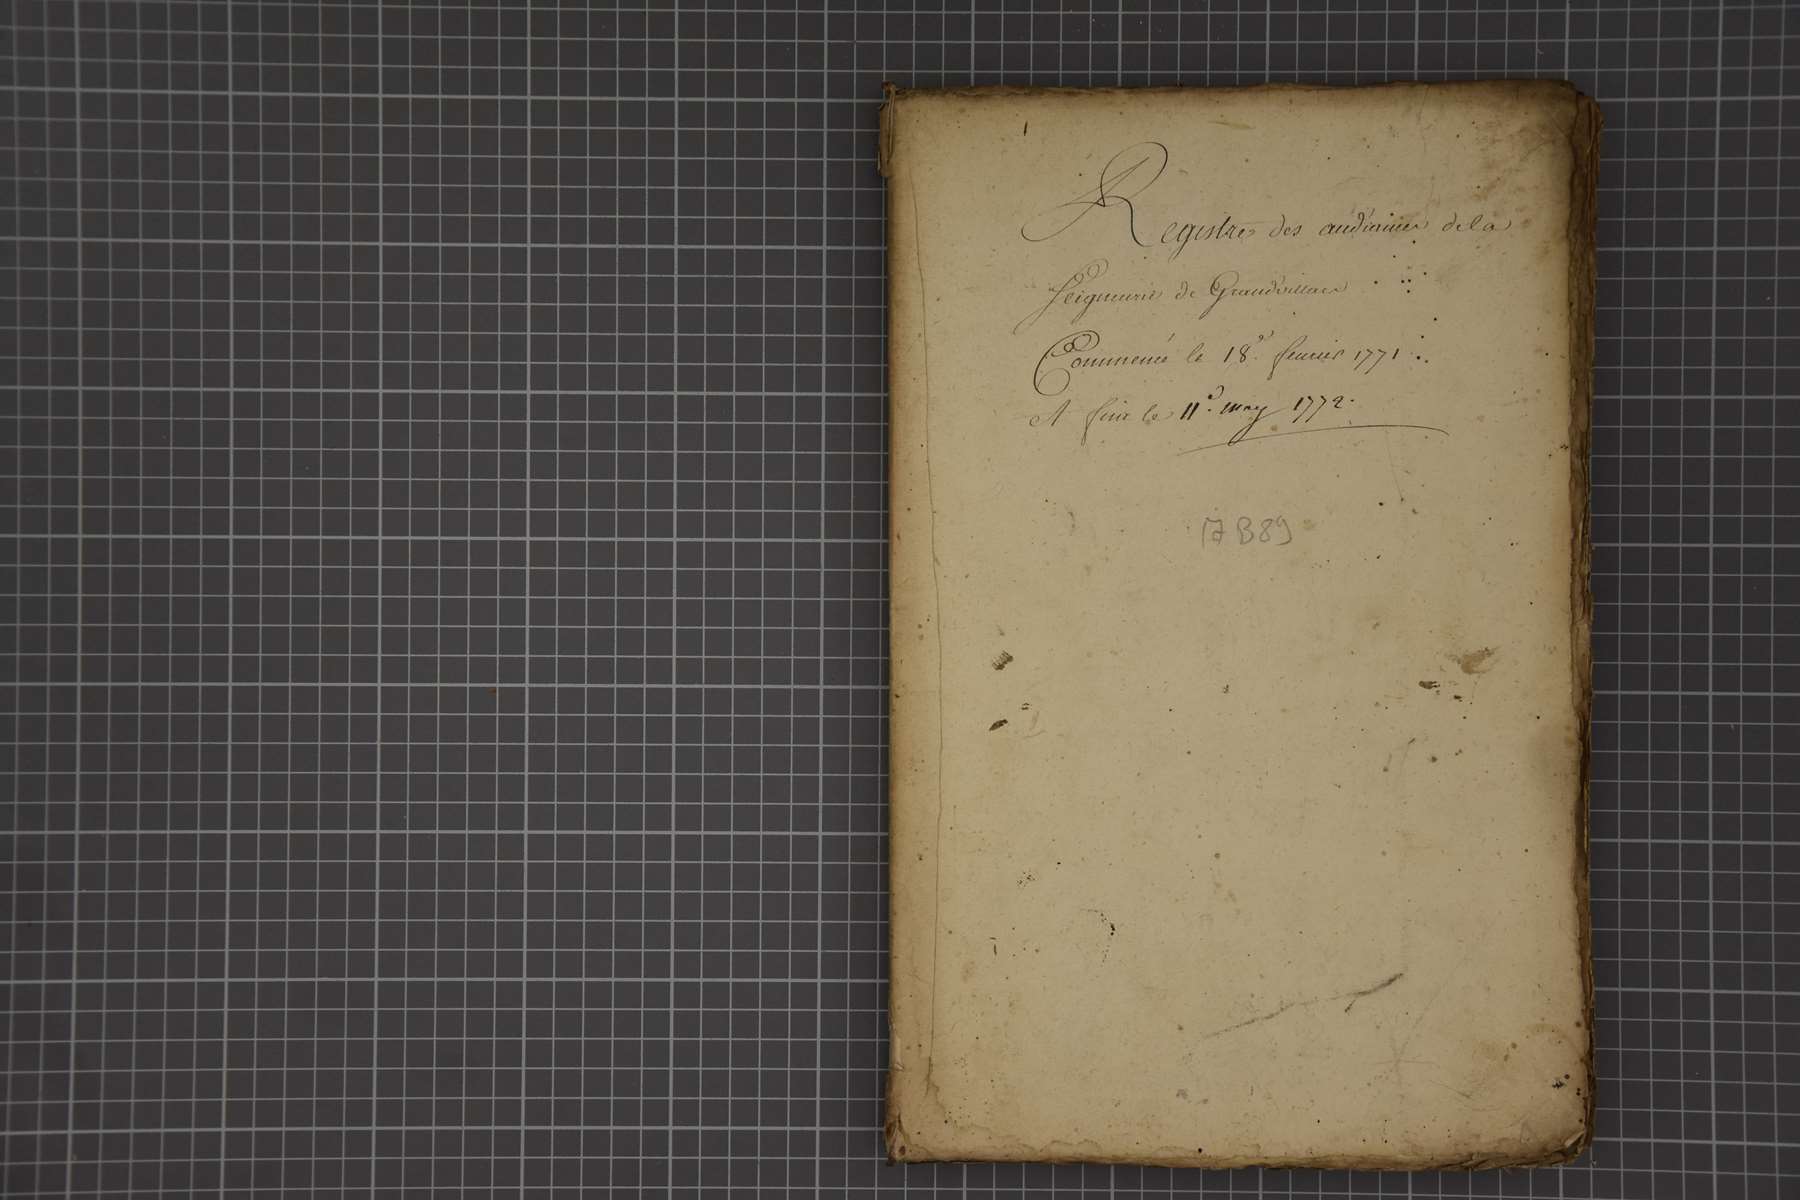 Registre des audiances de la
Seigneurie de Grandvillars
Commencé le 18e. fevrier 1771.
et fini le 11e. may 1772.
17 B 89